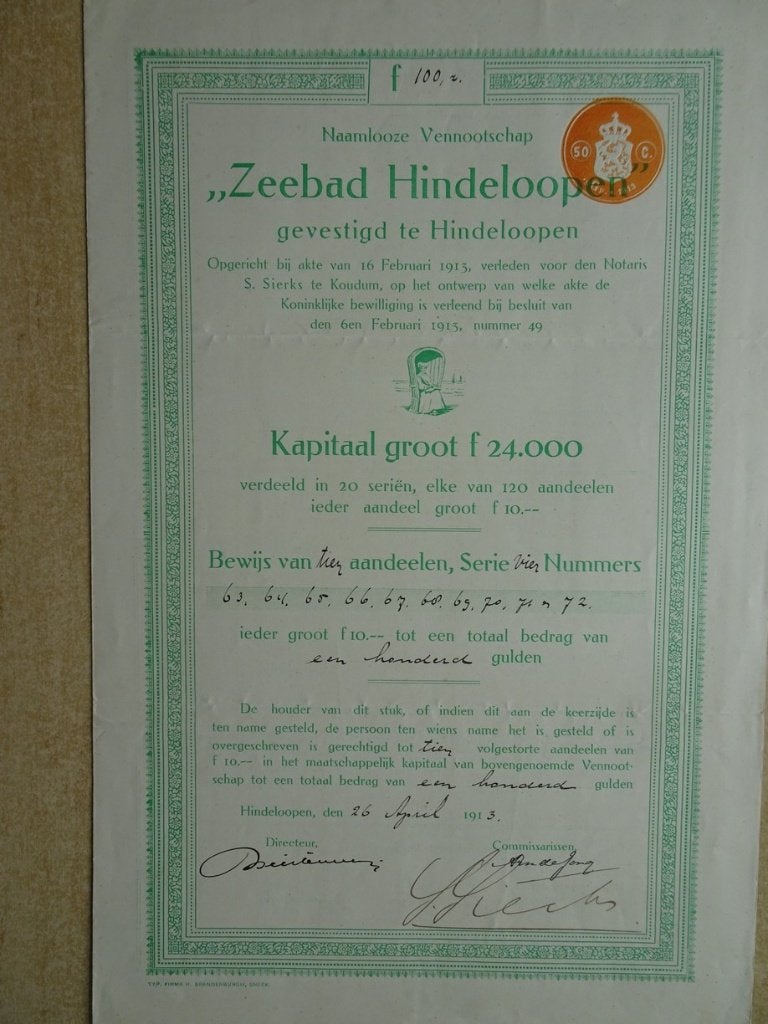 f 100,-.
Naamlooze Vennootschap
50 C.
„Zeebad Hindeloopen”
gevestigd te Hindeloopen
Opgericht bij akte van 16 Februari 1913, verleden voor den Notaris
S. Sierks te Koudum, op het ontwerp van welke akte de
Koninklijke bewilliging is verleend bij besluit van
den 6en Februari 1913, nummer 49
Kapitaal groot f 24.000
verdeeld in 20 seriën, elke van 120 aandeelen
ieder aandeel groot f 10.--
Bewijs van tien aandeelen, Serie vier Nummers
63, 64, 65, 66, 67, 68, 69, 70, 71 n 72.
ieder groot f 10.-- tot een totaal bedrag van
een honderd gulden
De houder van dit stuk, of indien dit aan de keerzijde is
ten name gesteld, de persoon ten wiens name het is gesteld of is
overgeschreven is gerechtigd tot tien volgestorte aandeelen van
f 10.-- in het maatschappelijk kapitaal van bovengenoemde Vennoot-
schap tot een totaal bedrag van een honderd gulden
Hindeloopen, den 26 April 1913.
Directeur, Commissarissen
S. Sierks
TYP. FIRMA H. BRANDENBURGH, SNEEK.